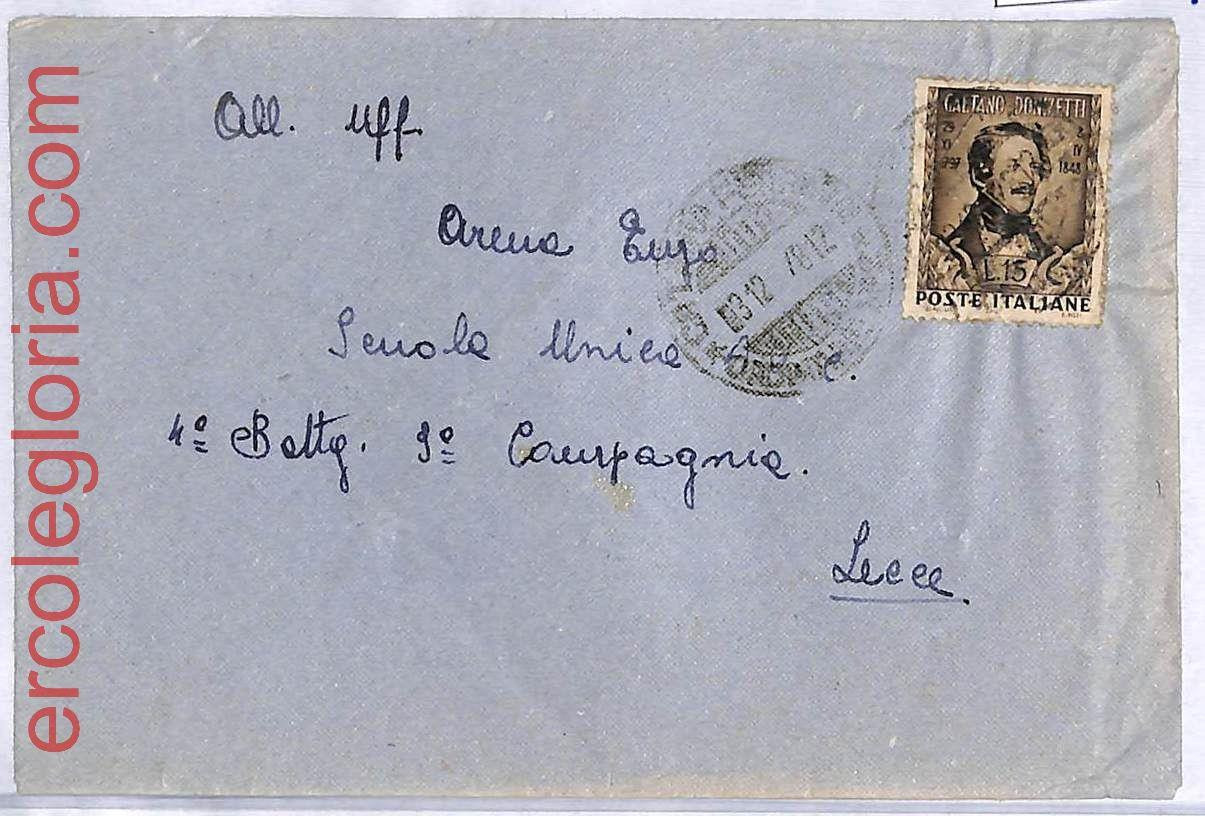 ercolegloria.com
All. Uff
Arena Enzo
Scuola Unica
4º Battg. 9º Compagnia.
Lecce.
GAETANO DONIZETTI
29 XI 1797
8 IV 1848
L.15
POSTE ITALIANE